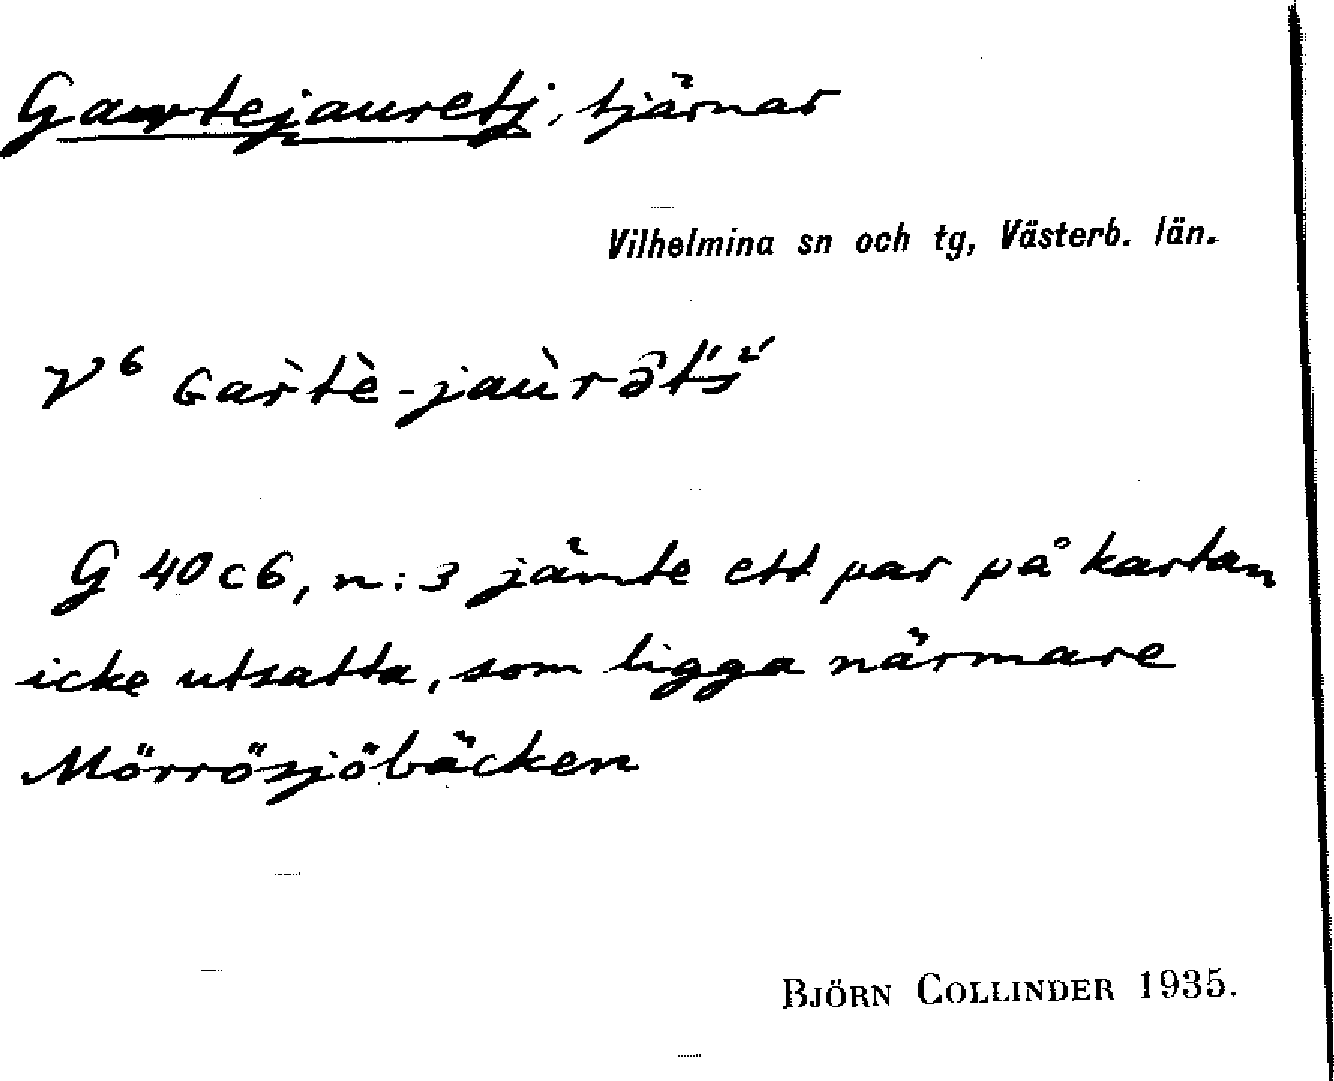 Gartejauretj, tjärnar
Vilhelmina sn och tg, Västerb. län.
V⁶ Gar̀tè-jaùrət́š́
G 40 c 6, n:3 jämte ett par på kartan
icke utsatta, som ligga närmare
Mörrösjöbäcken
BJÖRN COLLINDER 1935.